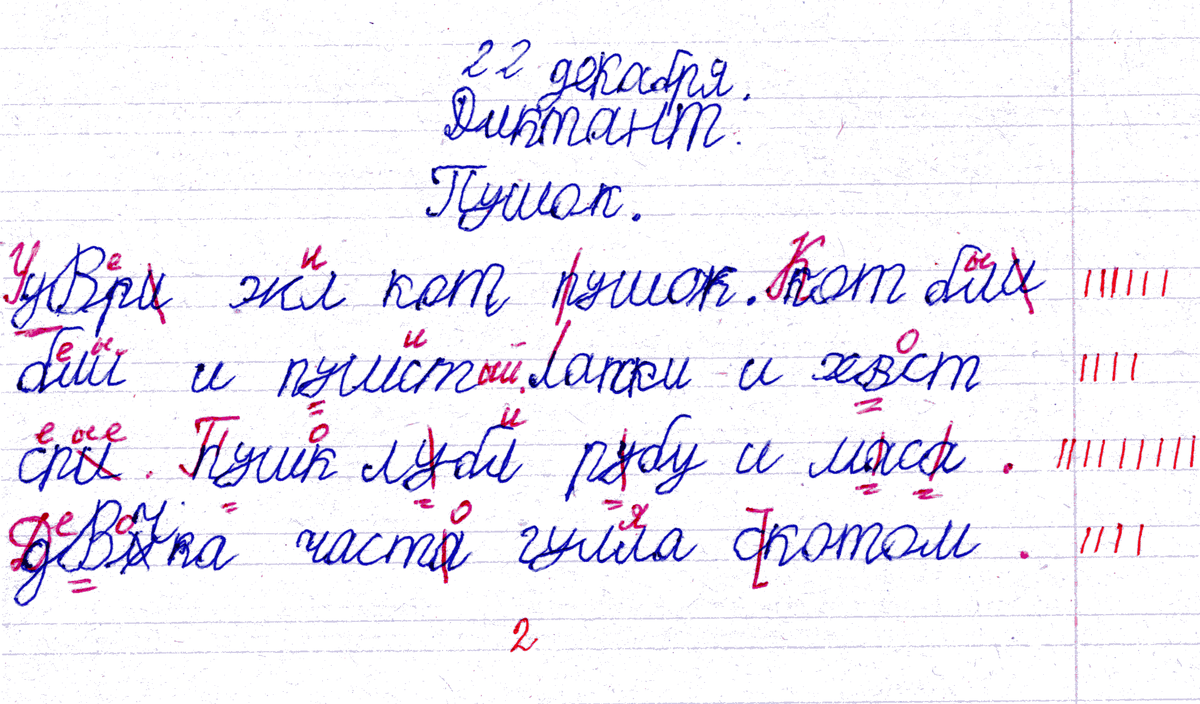 22 декабря.
Диктант.
Пушок.
уВри жл кот пушок. кот бли
бли и пушстый. лапки и хвст
сри. Пушк лубл рубу и маса.
деВчка часта гуляла скотом.
2